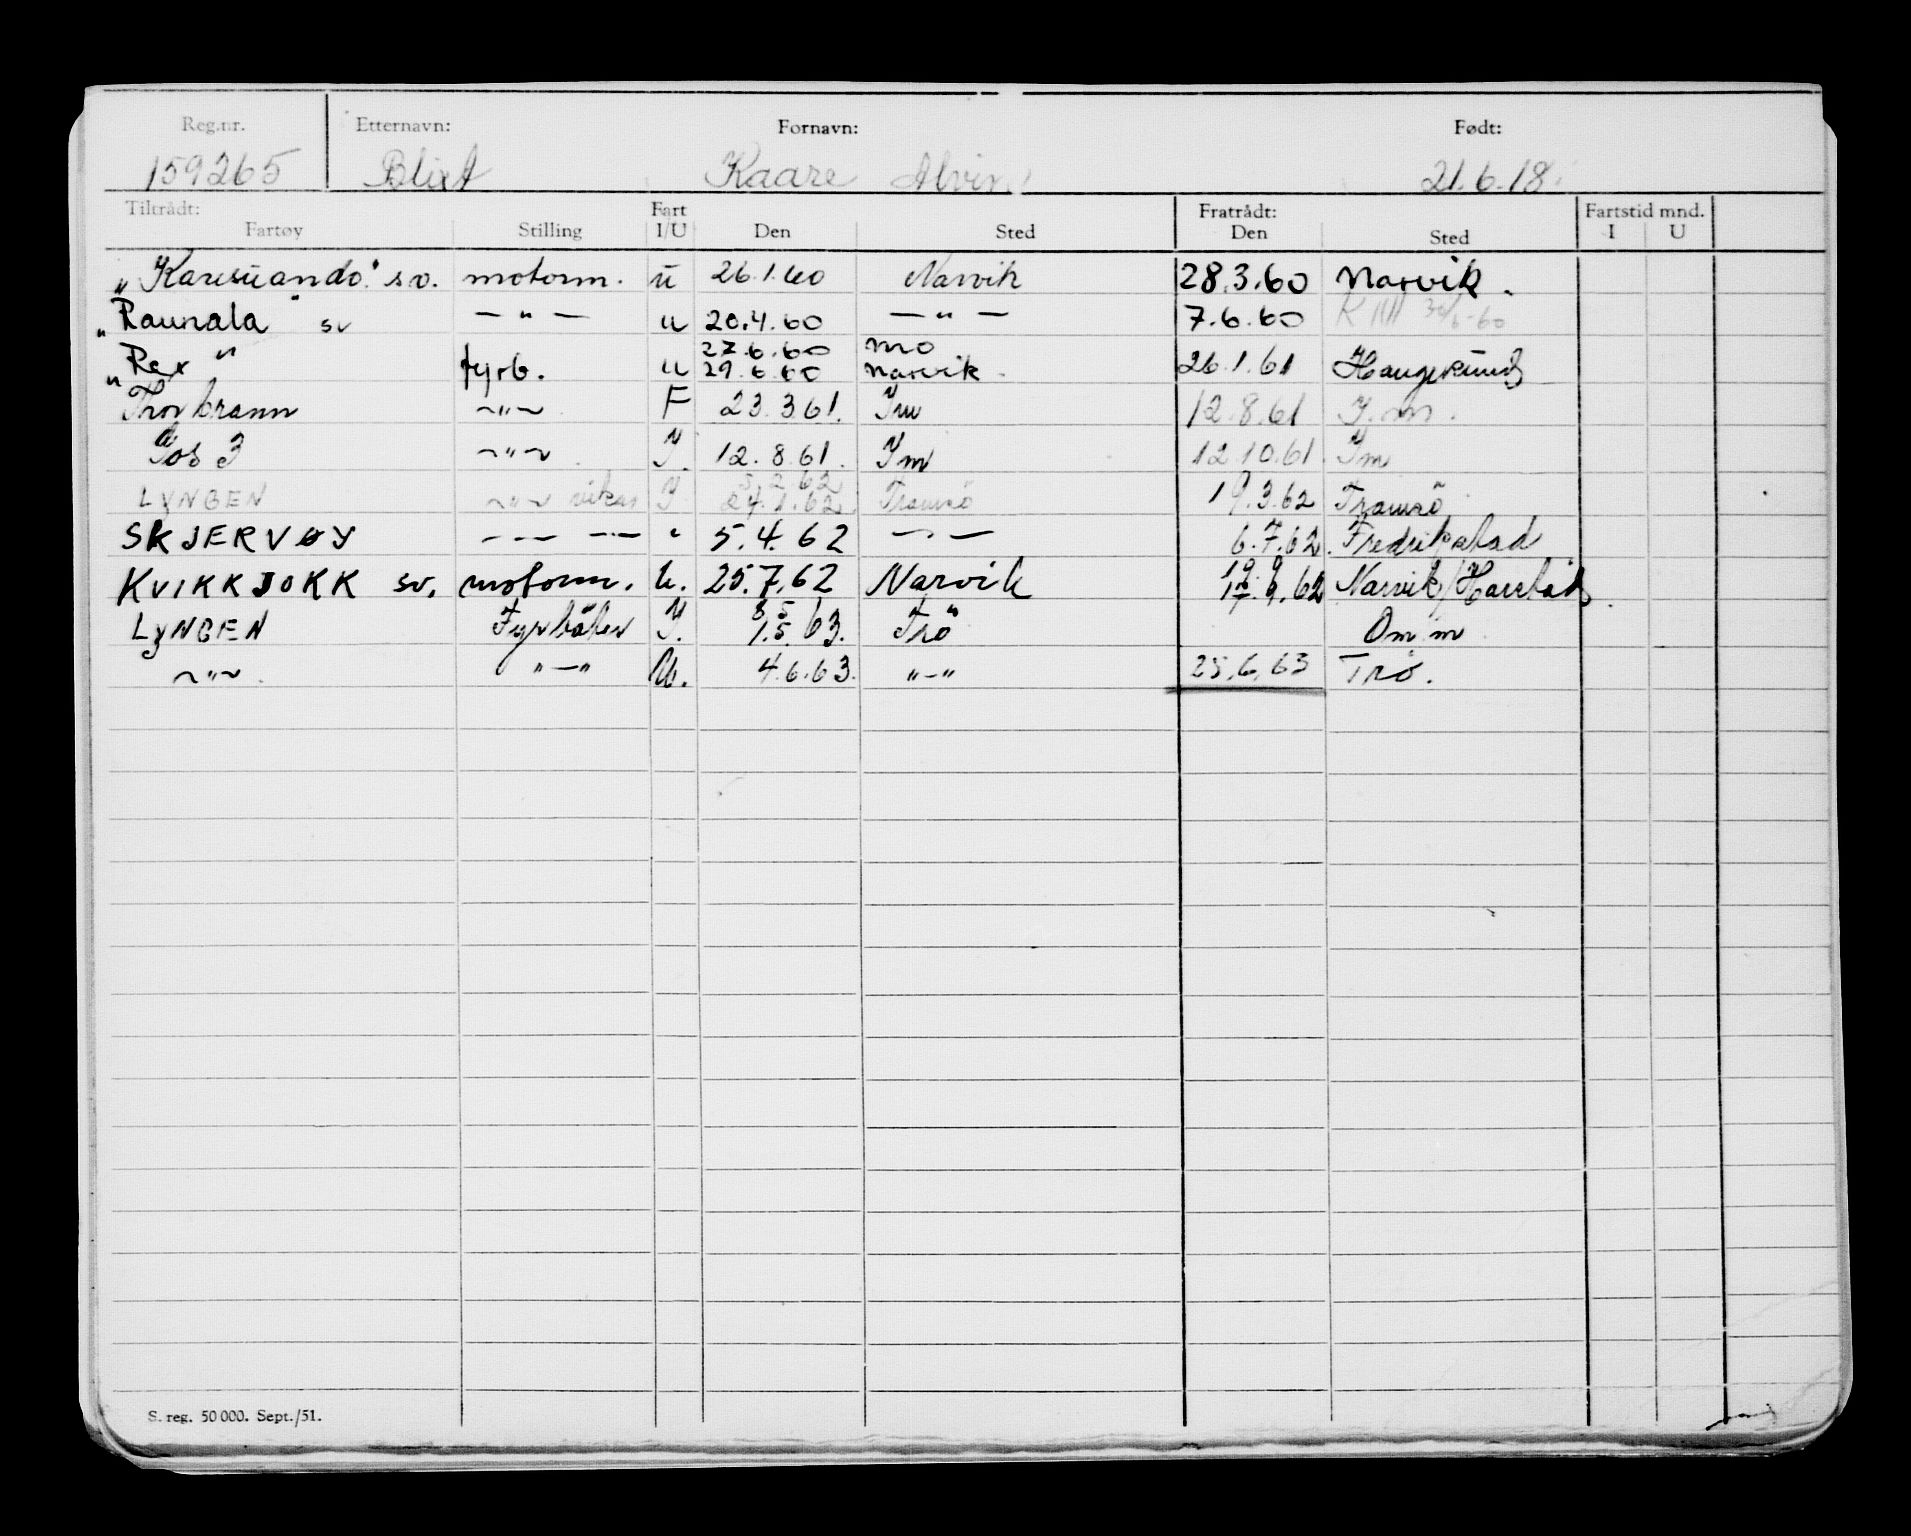 Reg.nr. Etternavn: Fornavn: Født:
159265 Blixt Kaare Alvin 21.6.18.
Tiltrådt: Fart Fratrådt: Fartstid mnd.
Fartøy Stilling I/U Den Sted Den Sted I U
"Karesuando" sv. motorm. u 26.1.60 Narvik 28.3.60 Narvik.
"Raunala" sv — " — u 20.4.60 — " — 7.6.60 30/6-60
27.6.60 Mo
"Rex" fyrb. u 29.6.60 Narvik. 26.1.61 Haugesund
~"~ F 23.3.61. Im 12.8.61 I.m.
3 ~"~ I. 12.8.61. Im 12.10.61. Im
5.2.62
LYNGEN ~"~ vikar I 24.1.62. Tromsö 19.3.62 Tromsö
SKJERVØY — — — — " 5.4.62 — — 6.7.62. Fredrikstad
19.9
KVIKKJOKK sv. motorm. U. 25.7.62 Narvik 17.9.62 Narvik/Harstad.
8 5
LYNGEN Fyrbøter I. 1.5.63. Trö Om.m
~"~. "—" U. 4.6.63. "—" 25.6.63 Trö.
S. reg. 50 000. Sept./51.